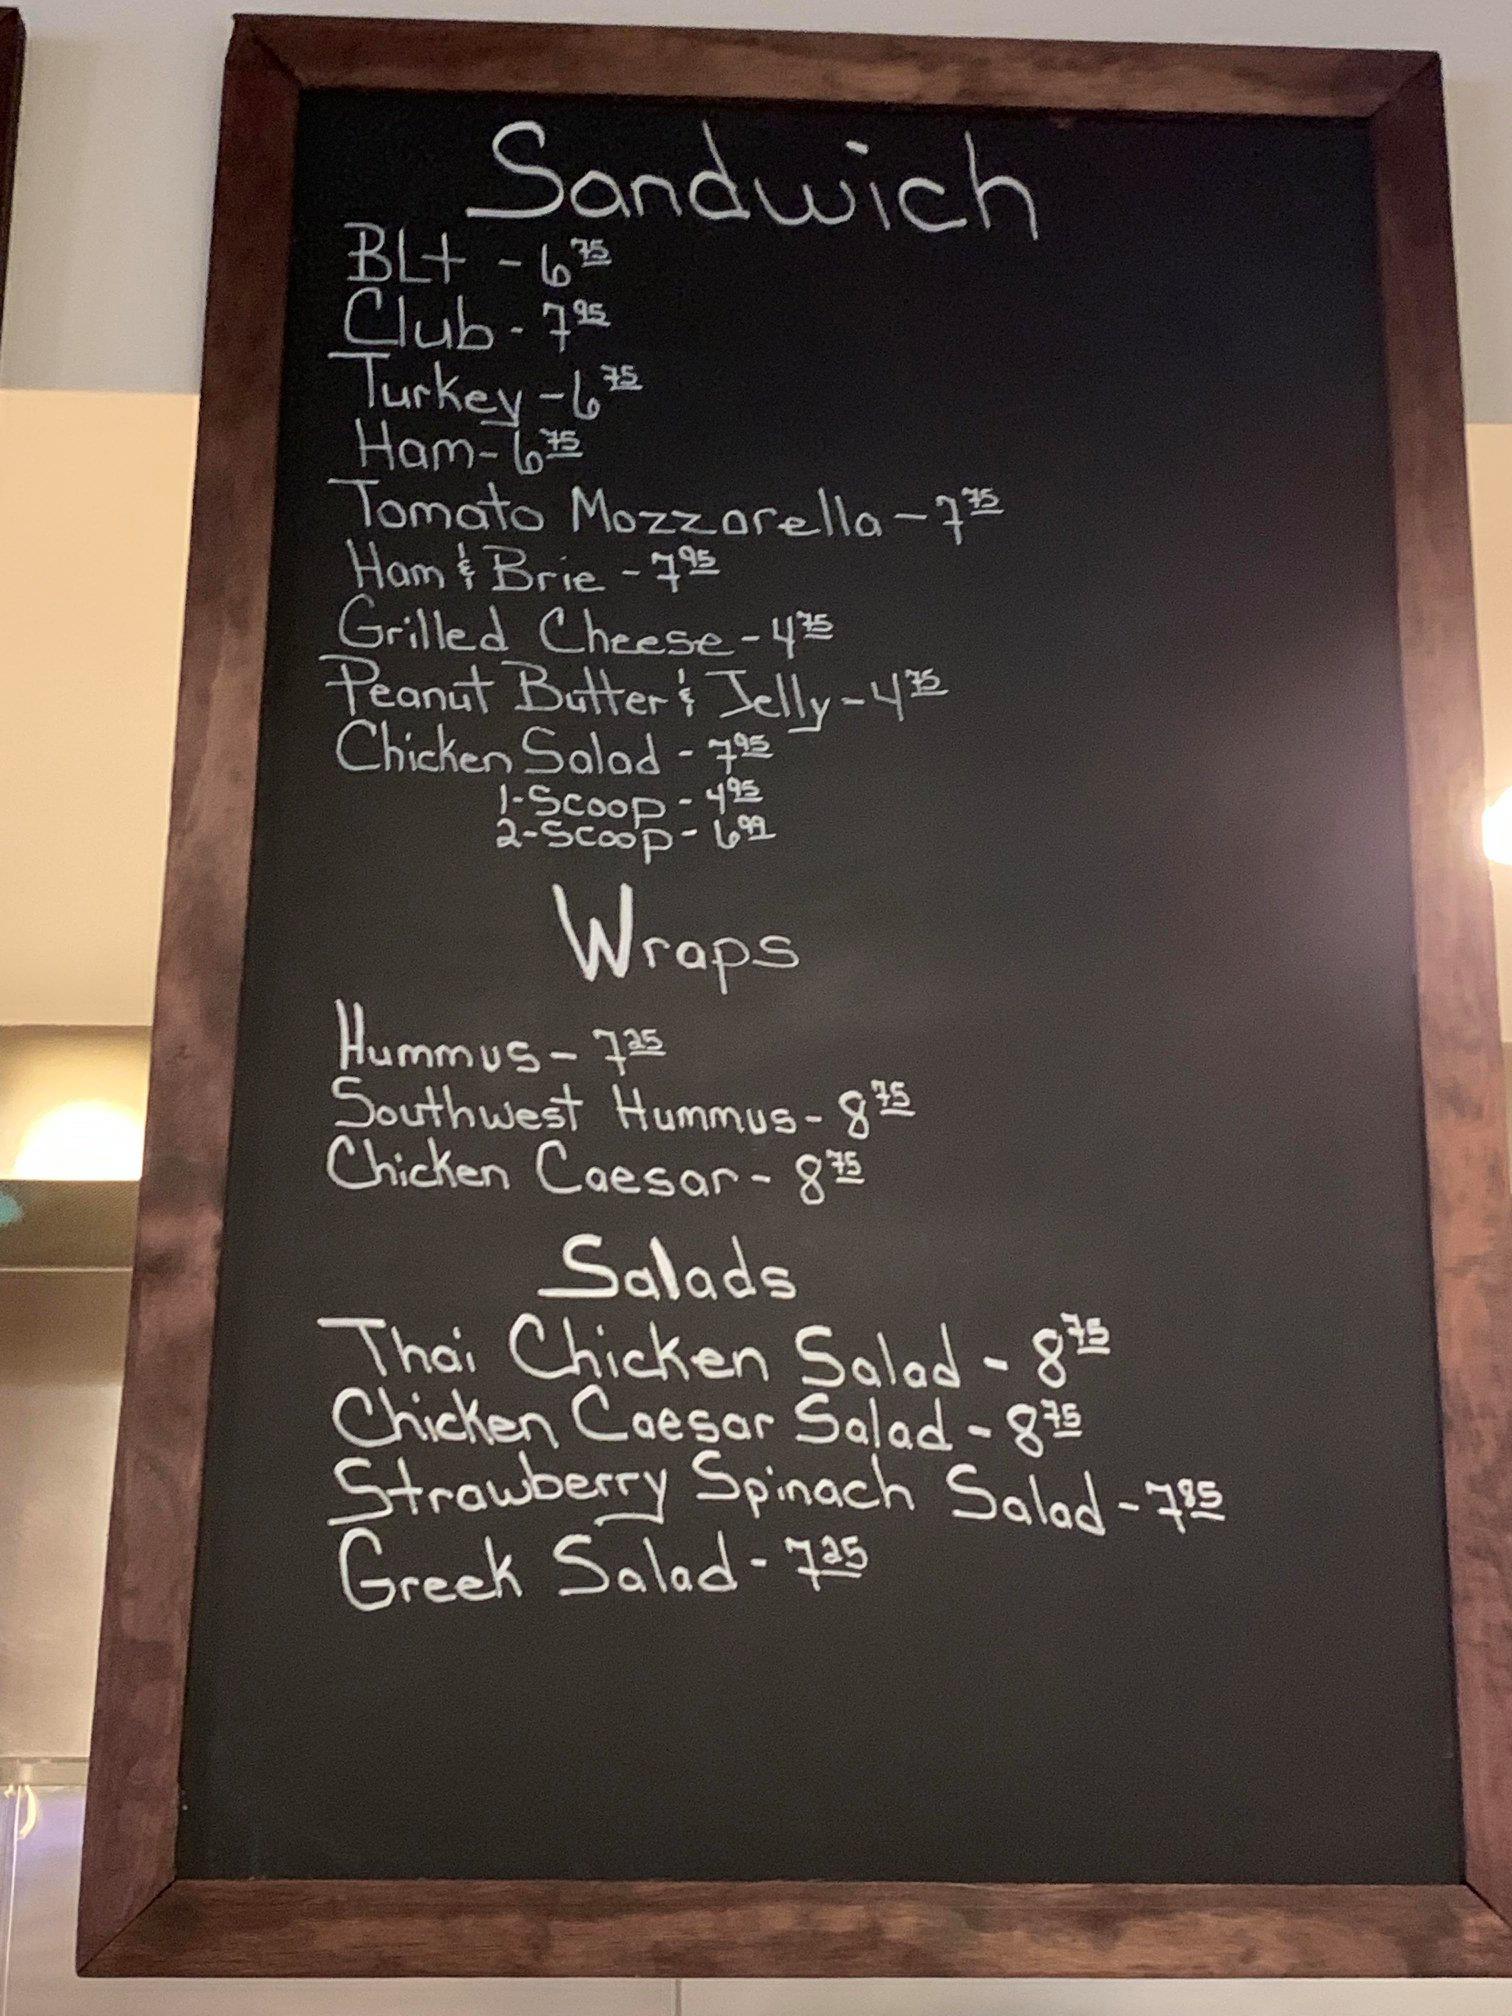 Sandwich
BLt - 6 75
Club - 7 95
Turkey - 6 75
Ham - 6 75
Tomato Mozzarella - 7 75
Ham & Brie - 7 95
Grilled Cheese - 4 75
Peanut Butter & Jelly - 4 75
Chicken Salad - 7 95
1-Scoop - 4 95
2-Scoop - 6 99
Wraps
Hummus - 7 25
Southwest Hummus - 8 75
Chicken Caesar - 8 75
Salads
Thai Chicken Salad - 8 75
Chicken Caesar Salad - 8 75
Strawberry Spinach Salad - 7 95
Greek Salad - 7 25